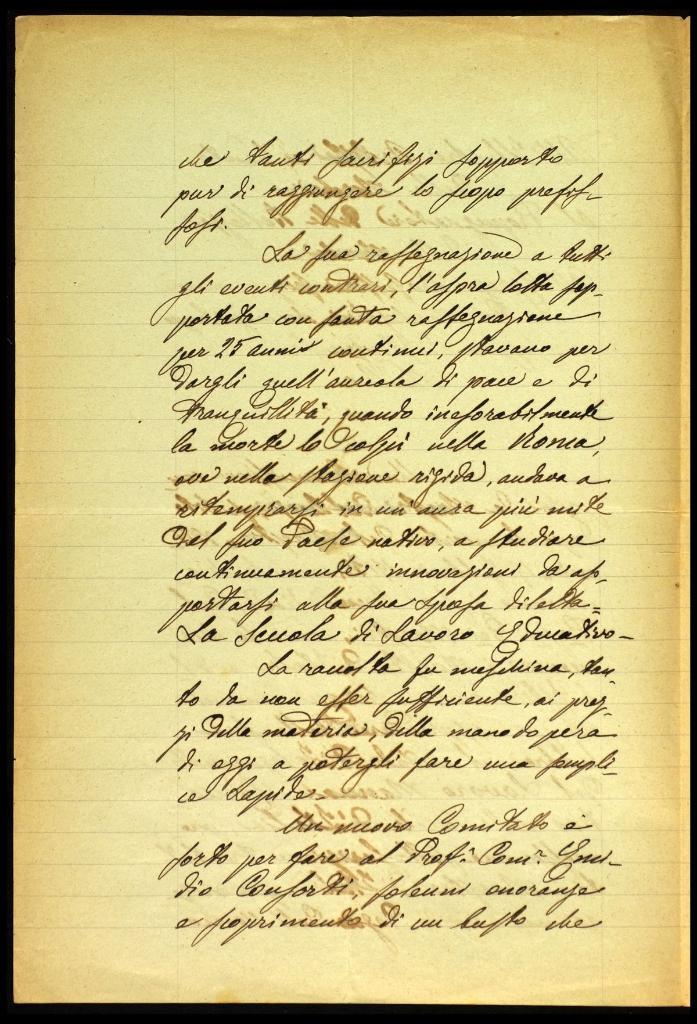 che tanti sacrifizi sopporto
pur di raggiungere lo scopo prefis-
sosi.
La sua rassegnazione a tutti
gli eventi contrari, l'aspra lotta sop-
portata con santa rassegnazione
per 25 anni continui, stavano per
dargli quell'aureola di pace e di
tranquillità, quando inesorabilmente
la morte lo colpì nella Roma,
ove nella stagione rigida, andava a
ritemprarsi in un'aura più mite
del suo Paese nativo, a studiare
continuamente innovazioni da ap-
portarsi alla sua sposa diletta=
La Scuola di Lavoro Educativo-
La raccolta fu meschina, tan-
to da non esser sufficiente, ai prez-
zi della materia, della mano d'opera
di oggi a potergli fare una sempli-
ce Lapide.
Un nuovo Comitato è
sorto per fare al Prof. Com. Emi-
dio Consorti, solenni onoranze
e scoprimento di un busto che